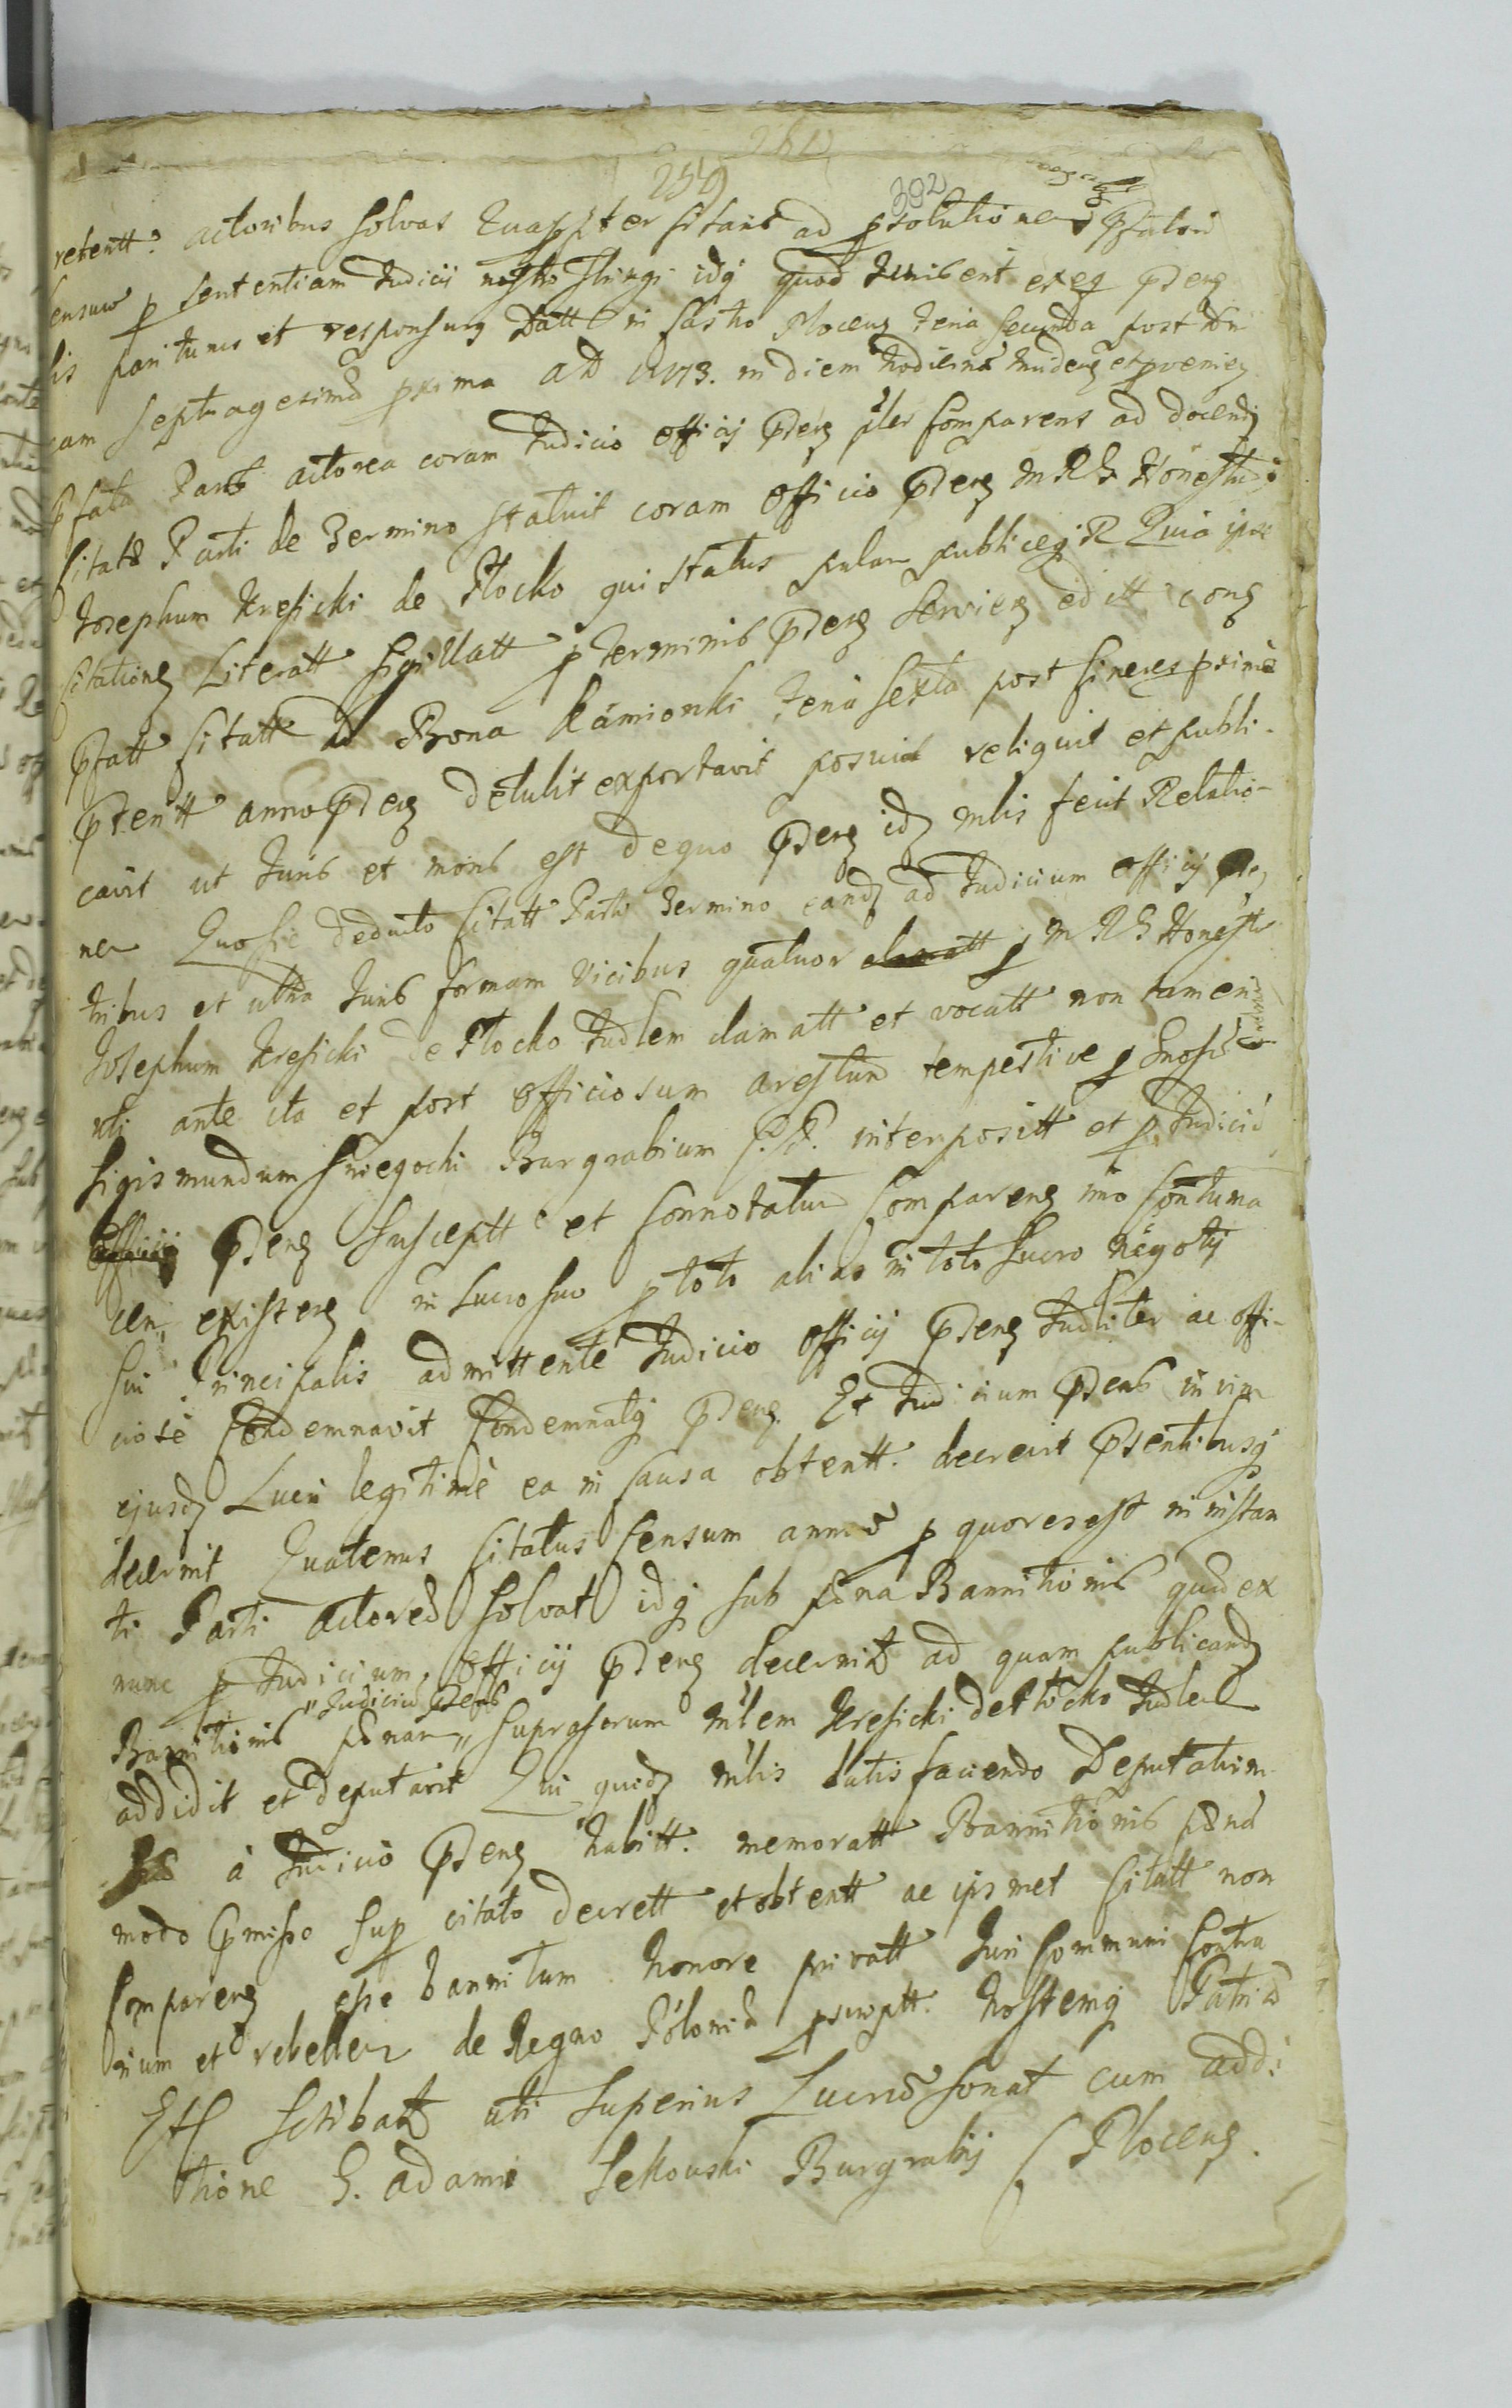 259 302
retentt. actoribus solvas Quapropter citaris ad psolutionem Pfatorum
censuum p sententiam Judicii nostri idq quod Juris erit ex eq Psens
lis pariturus et responsurus Datt in Castro Plocens feria secunda post Dni
cam septuagesimæ pxima AD 1773. in diem hodiernã incidens et proveniens
Pfata Pars actorea coram Judicio officij Psens plr Comparens ad docend
Citatæ Parti de Termino statuit coram officio Psens M R G Honestumq
Josephum Kresicki de Plocko qui status palam publiceq R Quia ipse
citationem Literatt sigillatt p terminis Psens servien editt cong
Pfatt Citatt ad Bona Kamionki feria sexta post Cineres pxima
Psentt anno Psens detulit exportavit posuit reliquit et publi-
cavit ut Juris et moris est de quo Psens idem mlis fecit Relatio-
nem Quo sic deducto Citatt Parti Termino eand ad Judicium officij Psens
tribus et ultra Juris formam vicibus quatuor p M R G Honest
Josephum Kresicki de Plocko Judlem clamatt et vocatt non tamen
uti ante ita et post officiosum arestum tempestive p Gnosum
Sigismundum Sniegocki Burgrabium C. P. interpositt et p Judiciũ
Psens susceptt et Connotatum Comparens imo Contuma
cem existens in Lucro suo p toto alias in toto Lucro negotij
sui Principalis admittente Judicio officij Psens Judliter ac offi-
ciose Condemnavit Condemnatq Psens. Et Judicium Psens in vim
ejusd Lucri legitimè ea in Causa obtentt. decrevit Psentibusq
decernit Quatenus Citatus Censum annuũ p quo res est in instan
ti Parti actoreæ Solvat idq sub pœna Bannitionis quã ex
nunc p Judicium officij Psens decernit ad quam publicand
Bannitionis pœnam „Judiciũ Psens„ suprasserum mlem Kresicki de Plocko Judlem
addidit et deputavit Qui quid mlis satisfaciendo Deputationi
suæ à Judicio Psens habitt. memoratt Bannitionis pœnã
modo Pmisso sup citato decrett et obtentt ac ipsmet Citatt non
Comparens esse bannitum honore privatt Juri Communi Contra
rium et rebellem de Regno Poloniæ pscriptt. hostemq Patriæ
Etc Scribatur uti superius Lucrũ sonat cum addi
tione G. adami Sekowski Burgrabij C Plocens.